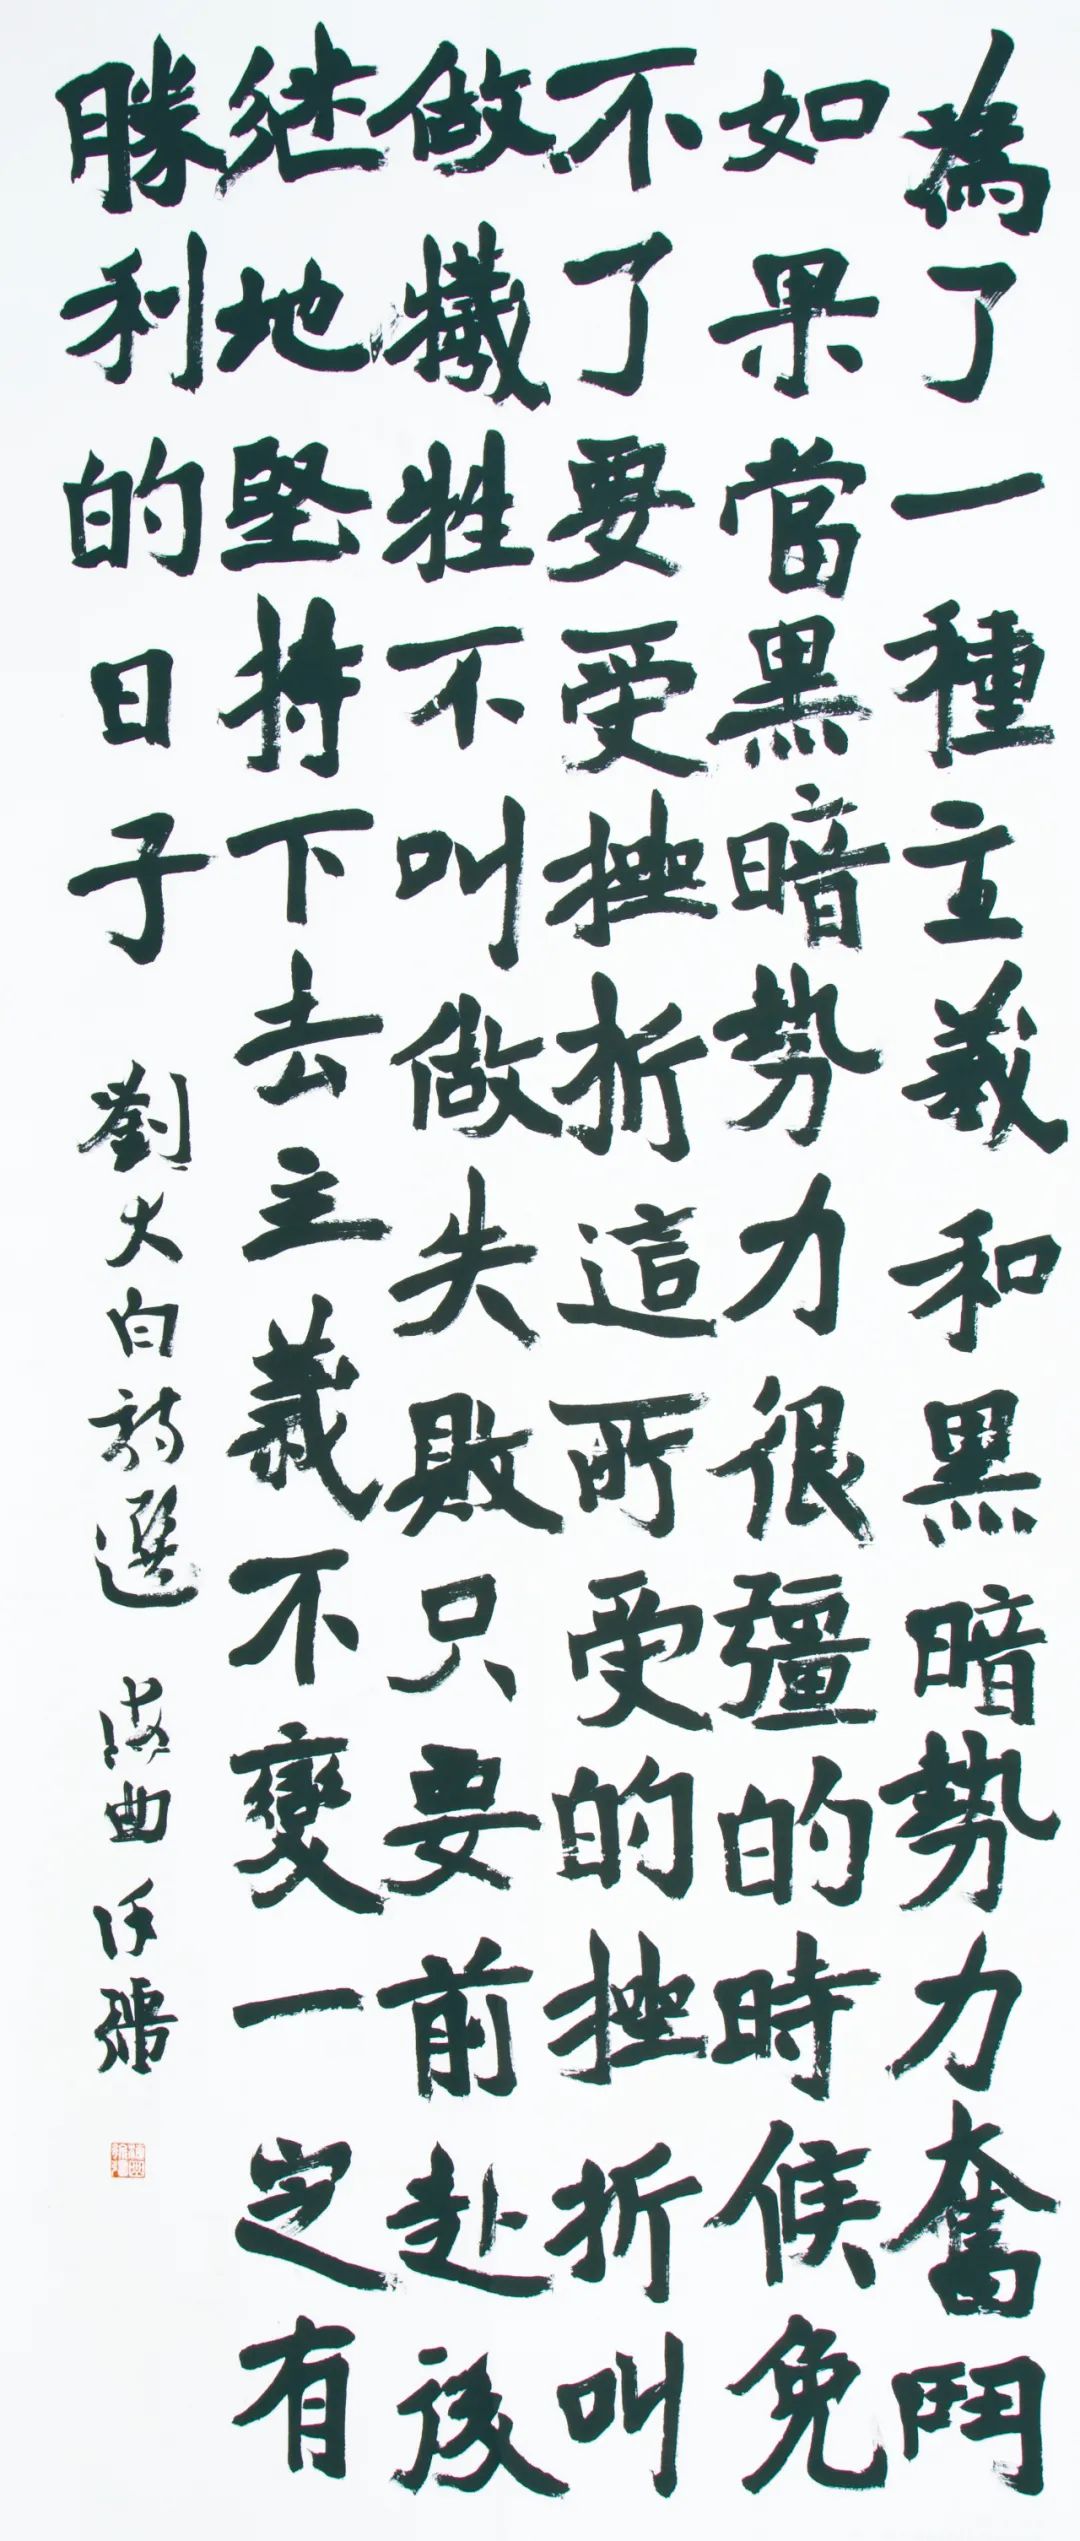 為了一種主義和黑暗勢力奮鬥
如果當黑暗勢力很彊的時候免
不了要受挫折這所受的挫折叫
做犧牲不叫做失敗只要前赴後
继地堅持下去主義不變一定有
勝利的日子
劉大白詩選
海曲